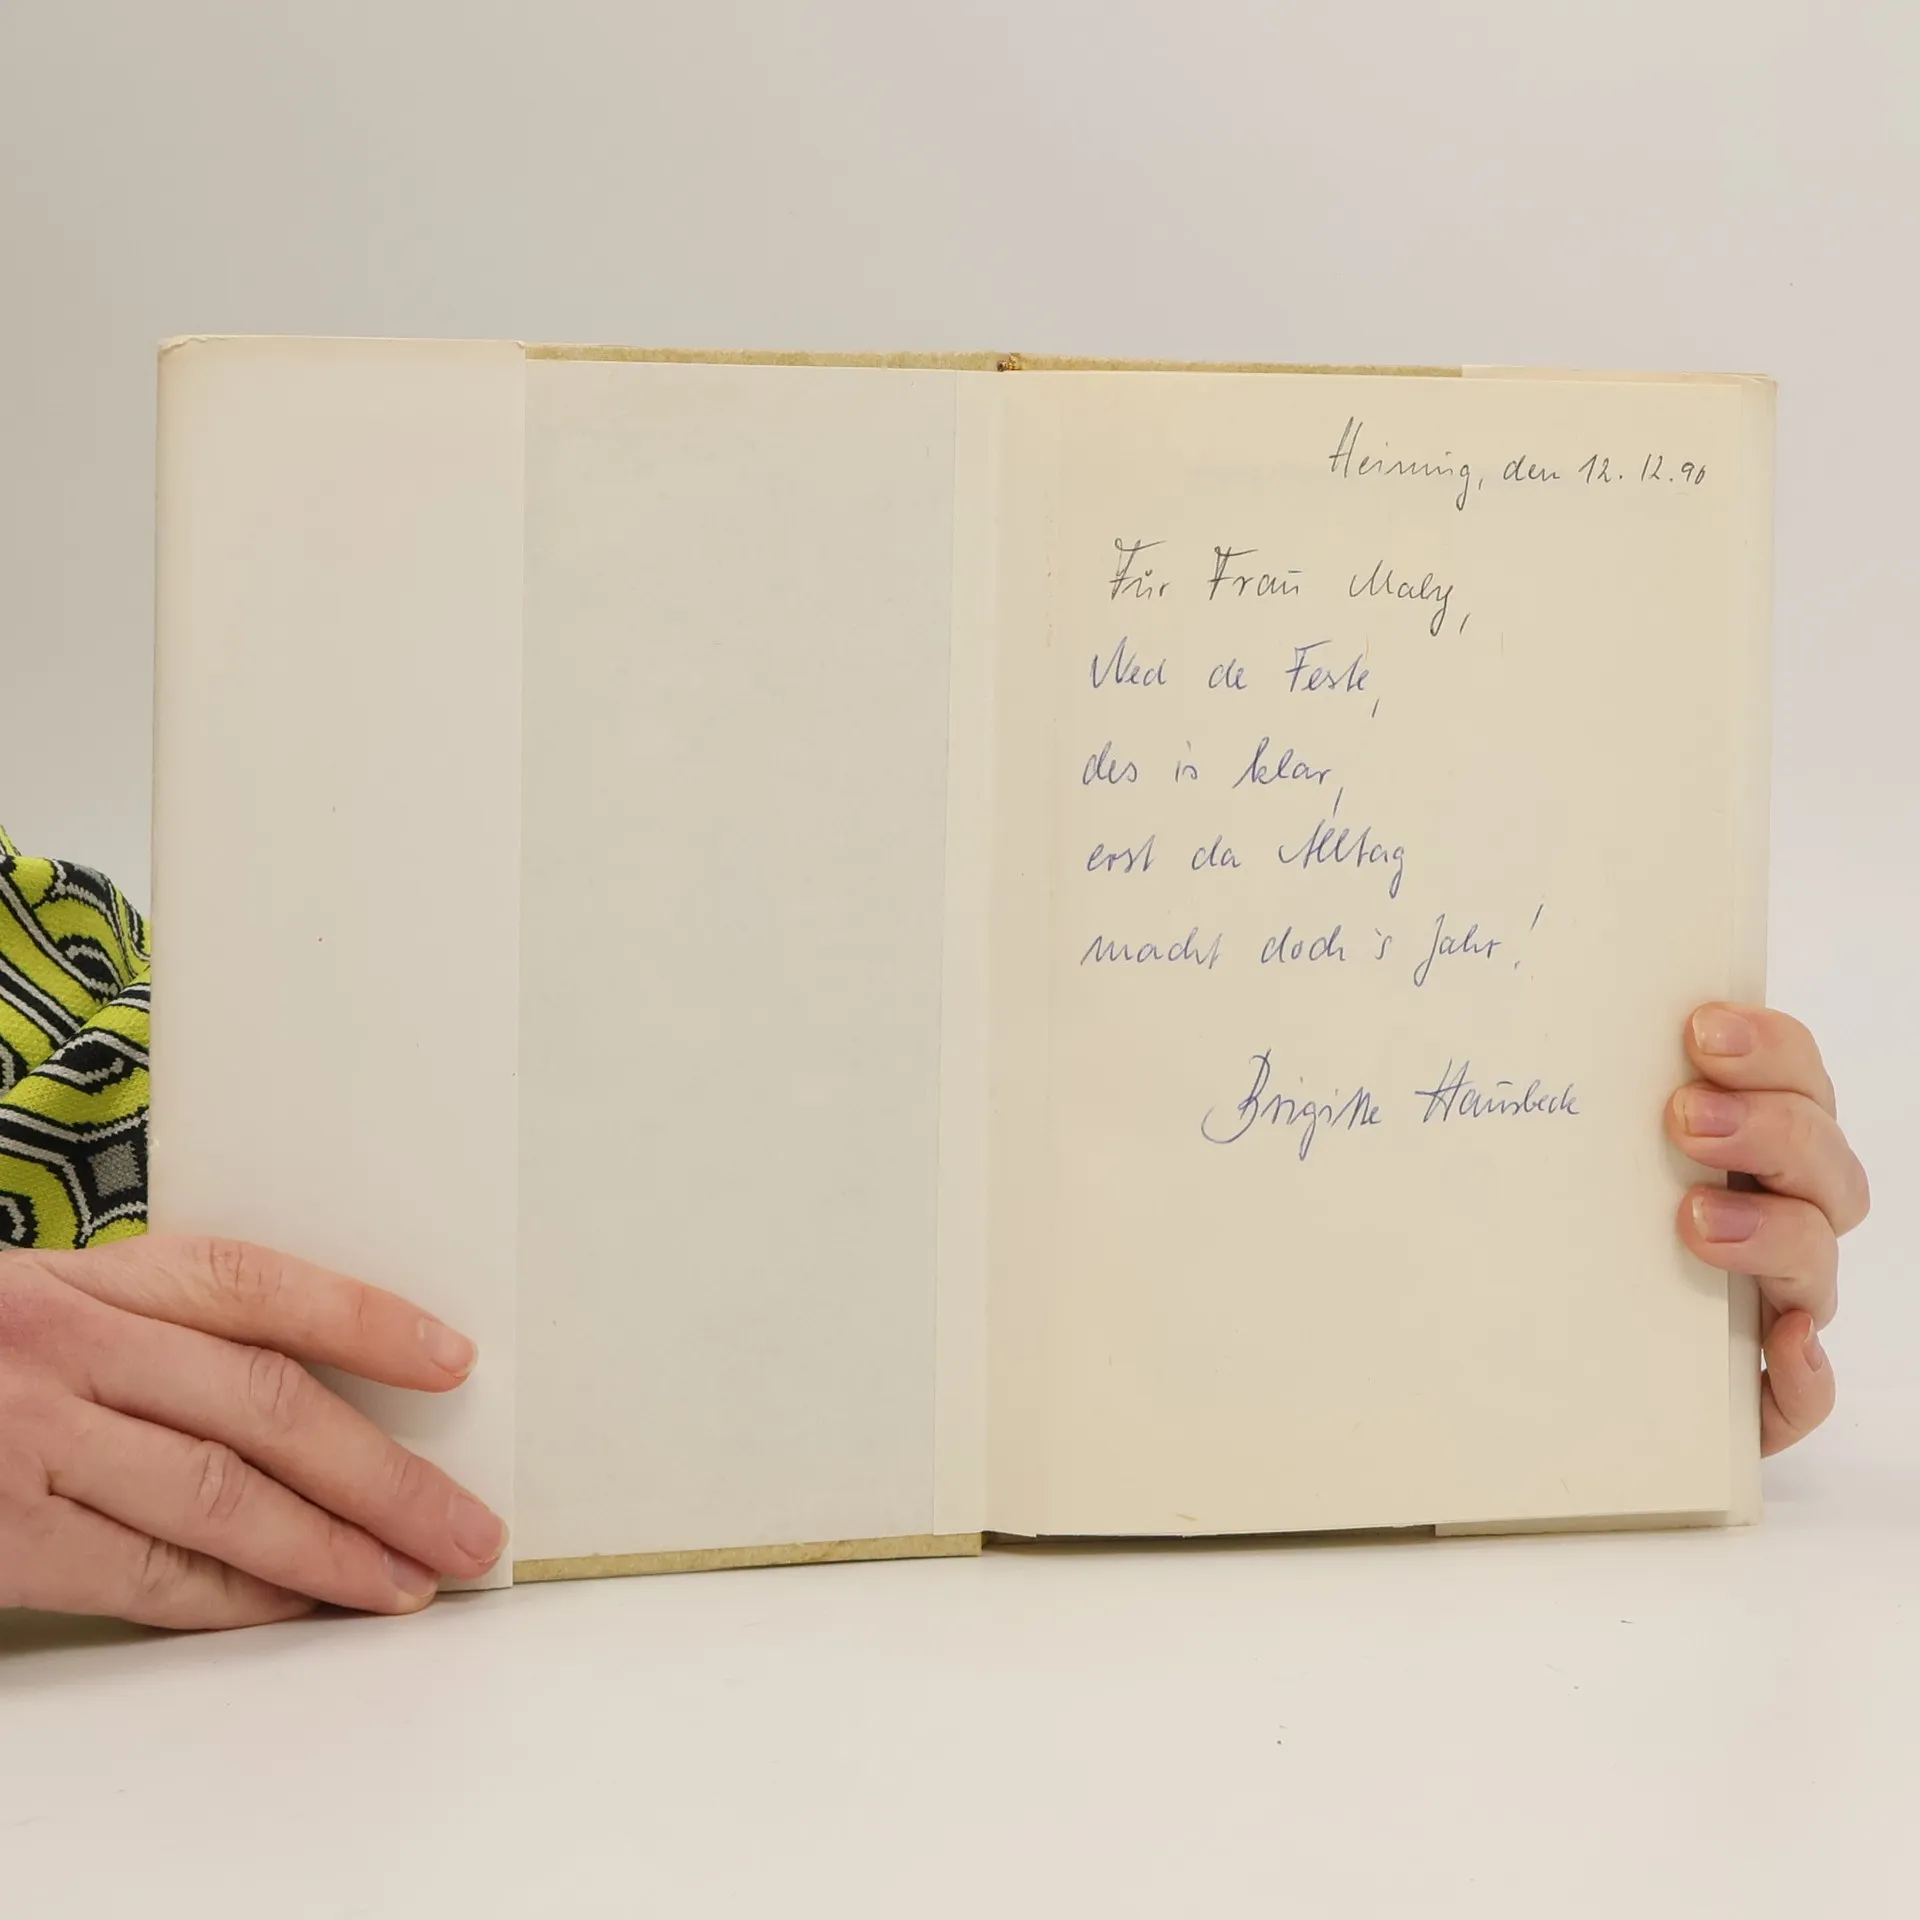 Heining, den 12.12.90
Für Frau Maly,
Ned de Feste,
des is klar,
erst da Alltag
macht doch 's Jahr!
Brigitte Hausbeck